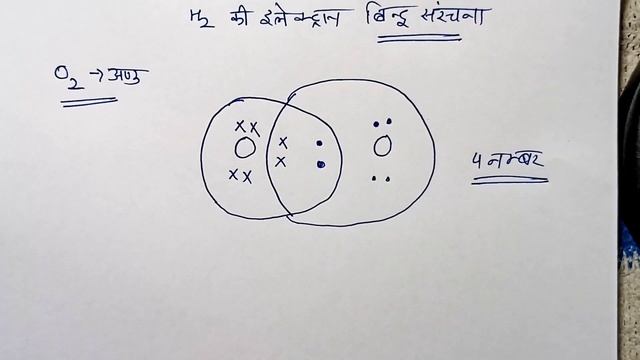 H₂ की इलेक्ट्रान बिन्दु संरचना
O₂ → अणु
x x
O
x x
x
x
O
4 नम्बर